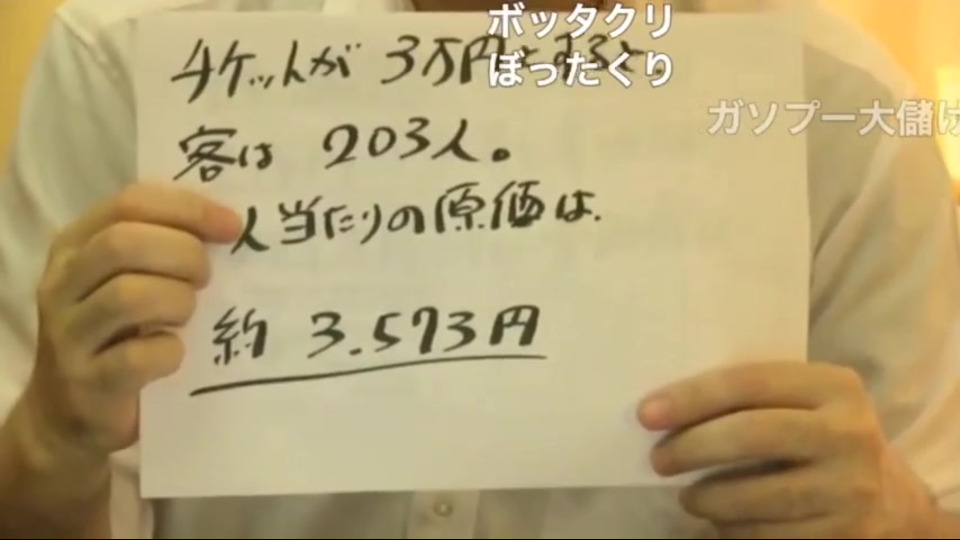 ボッタクリ
ぼったくり
ガソプー大儲け
チケットが 3万円とすると、
客は 203人。
人当たりの原価は、
約 3.573円